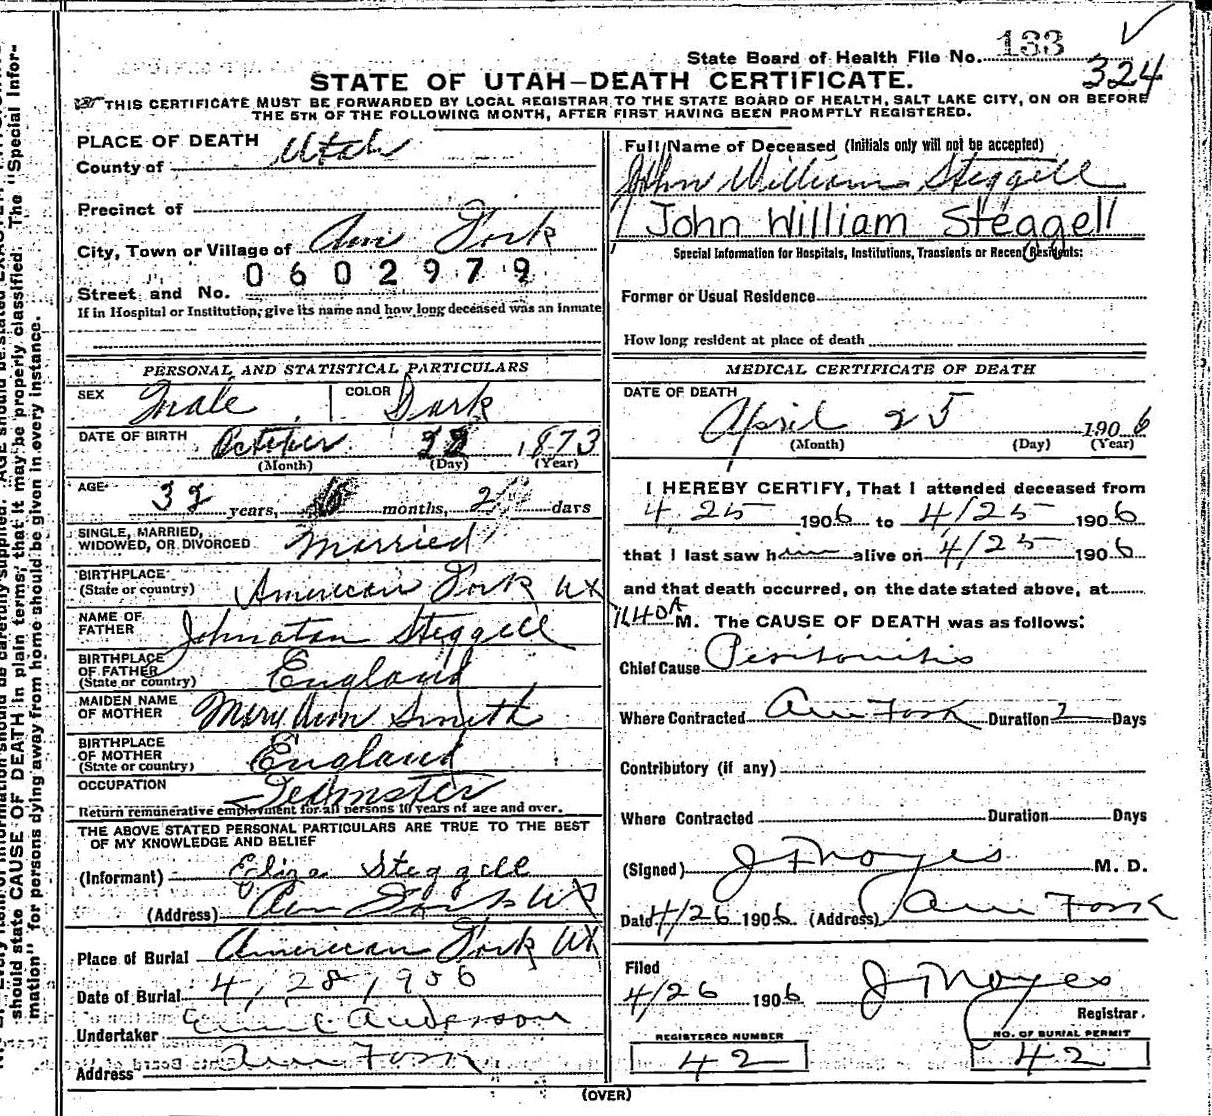 State Board of Health File No. 133
324
STATE OF UTAH—DEATH CERTIFICATE.
THIS CERTIFICATE MUST BE FORWARDED BY LOCAL REGISTRAR TO THE STATE BOARD OF HEALTH, SALT LAKE CITY, ON OR BEFORE
THE 5TH OF THE FOLLOWING MONTH, AFTER FIRST HAVING BEEN PROMPTLY REGISTERED.
PLACE OF DEATH
County of Utah
Precinct of
City, Town or Village of Am Fork
0602979
Street and No.
If in Hospital or Institution, give its name and how long deceased was an inmate
PERSONAL AND STATISTICAL PARTICULARS
SEX Male COLOR Dark
DATE OF BIRTH October 22 1873
(Month) (Day) (Year)
AGE 32 years, 6 months, 2 days
SINGLE, MARRIED,
WIDOWED, OR DIVORCED Married
BIRTHPLACE
(State or country) American Fork Ut
NAME OF
FATHER Johnatan Steggell
BIRTHPLACE
OF FATHER
(State or country) England
MAIDEN NAME
OF MOTHER Mary Ann Smith
BIRTHPLACE
OF MOTHER
(State or country) England
OCCUPATION Teamster
Return remunerative employment for all persons 10 years of age and over.
THE ABOVE STATED PERSONAL PARTICULARS ARE TRUE TO THE BEST
OF MY KNOWLEDGE AND BELIEF
(Informant) Eliza Steggell
(Address) Am Fork Ut
Place of Burial American Fork Ut
Date of Burial 4/28/906
Undertaker Anderson
Address Am Fork
Full Name of Deceased (Initials only will not be accepted)
John William Steggell
John William Steggell
Special Information for Hospitals, Institutions, Transients or Recent Residents:
Former or Usual Residence
How long resident at place of death
MEDICAL CERTIFICATE OF DEATH
DATE OF DEATH
April 25 1906
(Month) (Day) (Year)
I HEREBY CERTIFY, That I attended deceased from
4 25 1906 to 4/25 1906
that I last saw him alive on 4/25 1906
and that death occurred, on the date stated above, at
1140A M. The CAUSE OF DEATH was as follows:
Chief Cause Peritonitis
Where Contracted Am Fork Duration 2 Days
Contributory (if any)
Where Contracted Duration Days
(Signed) J F Noyes M. D.
Date 4/26 1906 (Address) Am Fork
Filed
4/26 1906 J F Noyes
Registrar.
REGISTERED NUMBER
42
NO. OF BURIAL PERMIT
42
(OVER)
should state CAUSE OF DEATH in plain terms, that it may be properly classified. The "Special Infor-
mation" for persons dying away from home should be given in every instance.